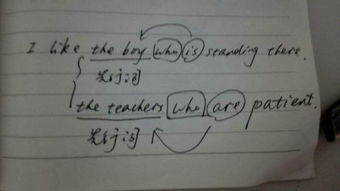 I like the boy who is standing there.
先行词
the teachers who are patient.
先行词